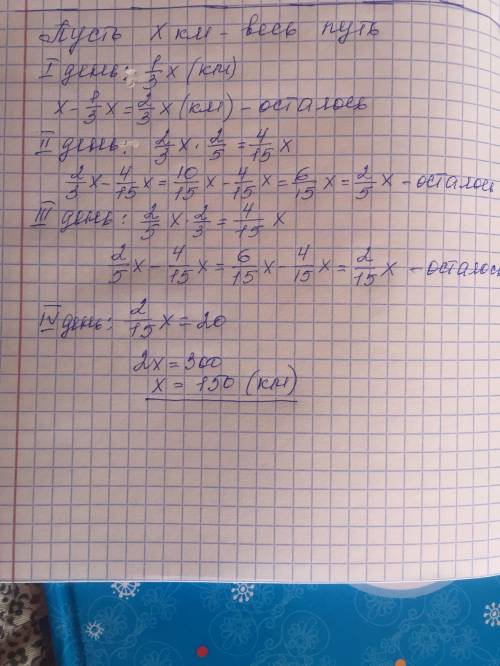 Пусть x км - весь путь
I день: 1/3 x (км)
x - 1/3 x = 2/3 x (км) - осталось
II день: 2/3 x · 2/5 = 4/15 x
2/3 x - 4/15 x = 10/15 x - 4/15 x = 6/15 x = 2/5 x - осталось
III день: 2/5 x · 2/3 = 4/15 x
2/5 x - 4/15 x = 6/15 x - 4/15 x = 2/15 x - осталось
IV день: 2/15 x = 20
2x = 300
x = 150 (км)